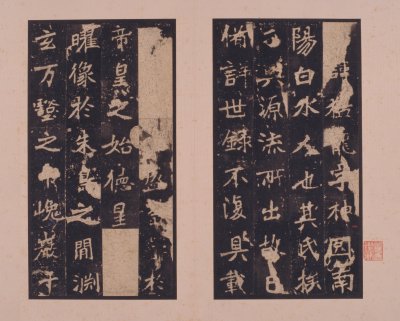 諱猛龍字神囧南
陽白水人也其氏族
分興源流所出故已
備詳世錄不復具載
於
帝皇之始德星
曜像於朱鳥之間淵
玄万壑之中巍巖千